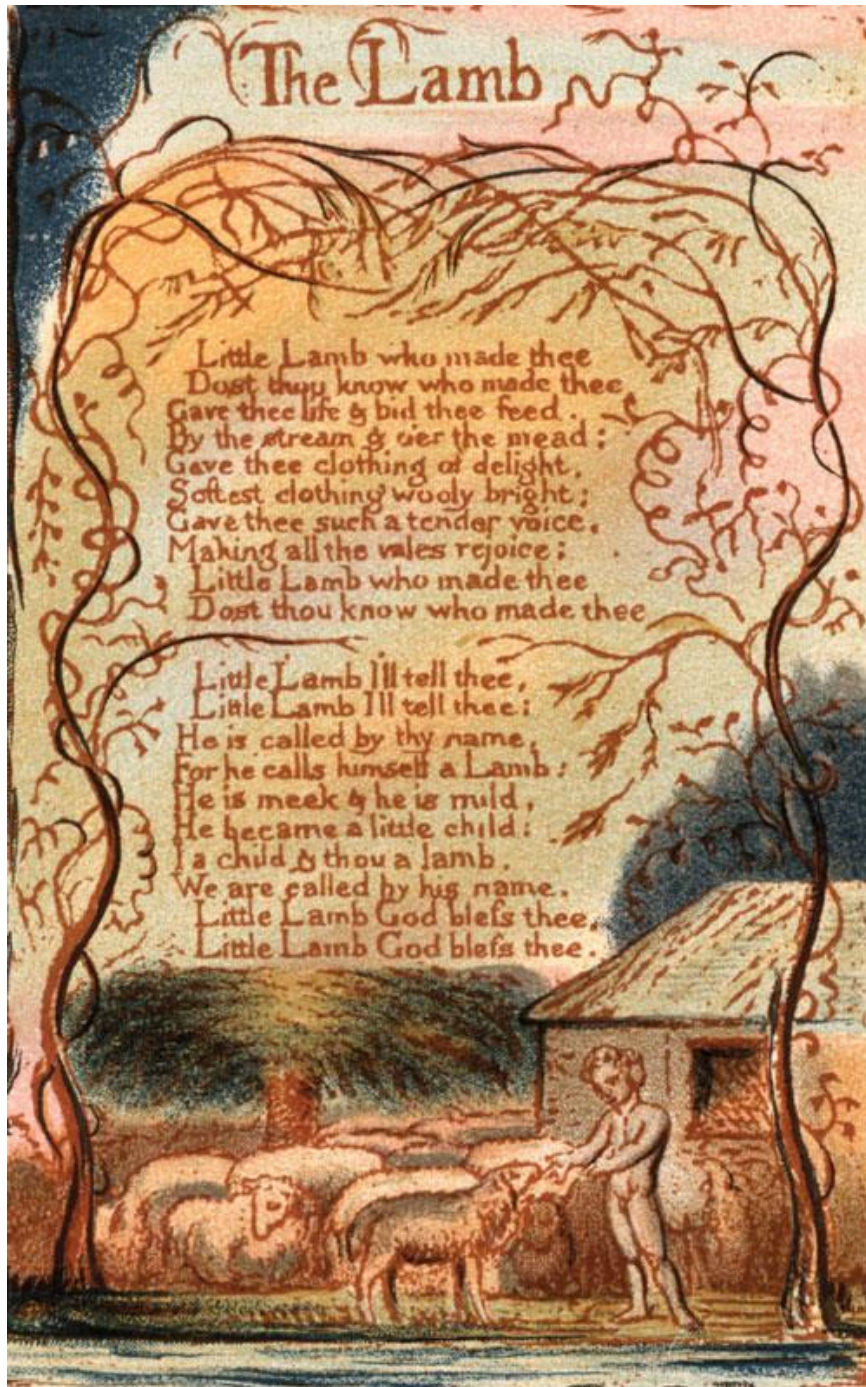 The Lamb
Little Lamb who made thee
Dost thou know who made thee
Gave thee life & bid thee feed.
By the stream & o'er the mead;
Gave thee clothing of delight,
Softest clothing wooly bright;
Gave thee such a tender voice,
Making all the vales rejoice;
Little Lamb who made thee
Dost thou know who made thee
Little Lamb I'll tell thee,
Little Lamb I'll tell thee:
He is called by thy name,
For he calls himself a Lamb:
He is meek & he is mild,
He became a little child:
I a child & thou a lamb,
We are called by his name.
Little Lamb God bleſs thee,
Little Lamb God bleſs thee.